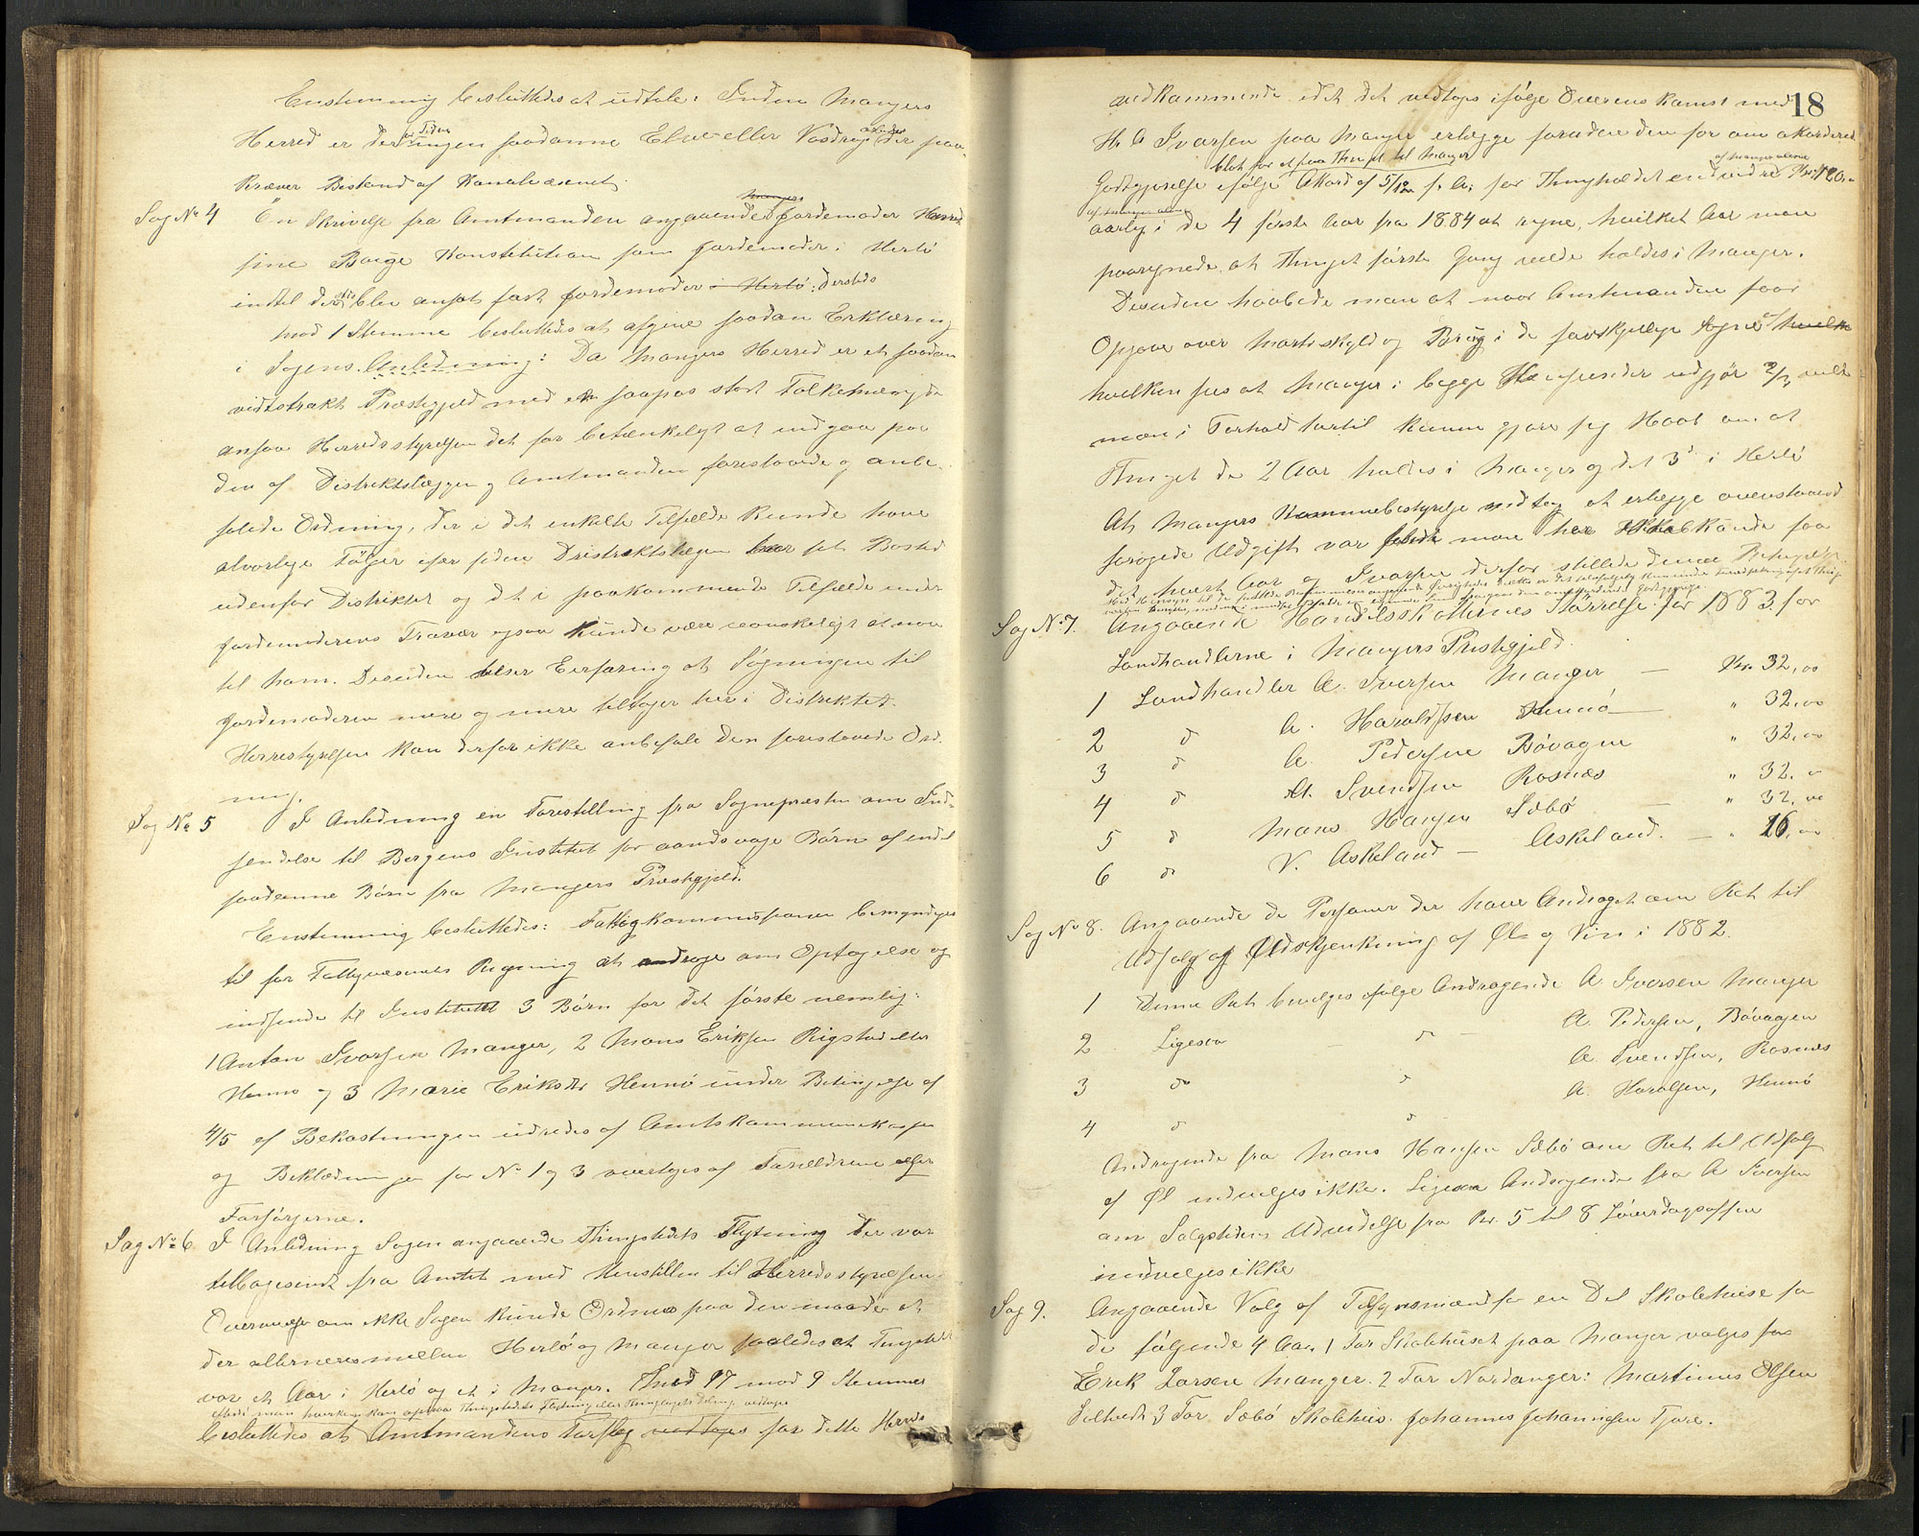 Enstemmig besluttedes at udtale: Inden Mangers
Herred er der for Tiden ingen saadanne Elve eller Vasdrag der paa-
kræver Bistand af Kanalvæsenet.
Sag No 4 En Skrivelse fra Amtmanden angaaende Mangers Jordemoder Hansine
Borge Konstitution som Jordemoder i Herlö
indtil der blev ansat fast Jordemoder i Herlö: dersteds
mod 1 Stemme besluttedes at afgive saadan Erklæring
i Sagens Anledning: Da Mangers Herred er et saadan
vidtstrakt Præstegjeld med en saapas stort Folkemængde
ansaa Herredsstyrelsen det for betænkeligt at indgaa paa
den af Distriktslægen og Amtmanden foreslaaede og anbe-
falede Ordning, der i det enkelte Tilfælde kunde have
alvorlige Følger især siden Distriktslægen har sit Bosted
udenfor Distriktet og det i paakommende Tilfælde under
Jordemoderens Fravær ogsaa kunde være vanskeligt at naa
til ham. Desuden viser Erfaring at Søgningen til
Jordemoderen mere og mere tiltager her i Distriktet.
Herredstyrelsen kan derfor ikke anbefale den foreslaaede Ord-
ning.
Sag No 5 I Anledning en Forestilling fra Sognepræsten om Ind-
sendelse til Bergens Institut for aandsvage Børn af endel
saadanne Børn fra Mangers Præstegjeld.
Enstemmig besluttedes: Fattigkommissionen bemyndiges
til for Fattigvæsenets Regning at andrage om Optagelse og
indsende til Institutet 3 Børn for det første nemlig:
1 Anton Ivarsen Manger, 2 Mons Eriksen Rigstad eller
Henno og 3 Marie Eriksdtr Hennö under Betingelse af
4/5 af Bekostningen udredes af Amtskommunekassen
og Beklædningen for No 1 og 3 overtages af Forældrene eller
Forsørgerne.
Sag No 6. I Anledning Sagen angaaende Thingstedets Flytning der var
tilbagesendt fra Amtet med Henstillen til Herredsstyrelsens
Overveielse om ikke Sagen kunde Ordnes paa den maade at
der alterneres mellem Herlö og Manger saaledes at Tingstedet
var et Aar i Herlö og et i Manger. Med 17 mod 9 Stemmer
efterat man hverken kan opnaa Thingstedets Flytning eller Thinglagets Deling vedtoges
besluttedes at Amtmandens Forslag vedtages for dette Herreds
18
vedkommende idet det vedtoges ifølge Overenskomst med
Hr A Ivarsen paa Manger erlægge foruden den før om akorderede
blot for et paa Thinget til Manger
Godtgjørelse ifølge Akord af 5/12 f. A. for Thingholdet endvidre af Mangerværene Kr. 120.-
af Manger alene
aarlig i de 4 første Aar fra 1884 at regne, hvilket Aar man
paaregnede at Thinget første Gang vilde holdes i Manger.
Desuden haabede man at naar Amtmanden faar
Opgave over Matrikskyld og Brug i de forskjellige Sogne af hvilke
hvilken sees at Manger i begge Henseender udgjør 2/3 vilde
man i Forhold hertil kunne gjøre sig Haab om at
Thinget de 2 Aar holdes i Manger og det 3die i Herlö
At Mangers Kommunebestyrelse vedtog at erlægge ovenstaaende
forøgede Udgift var fordi man her ikke kunde faa
det hvert Aar og Ivarsen derfor stillede denne Betingelse
Sag No 7. Angaaende Handelsskatternes Størrelse for 1883 for
Landhandlerne i Mangers Præstegjeld.
1 Landhandler A. Iversen Manger — Kr. 32,00
2 d A. Haraldsen Hennö — " 32,00
3 d A. Pedersen Bövagen " 32,00
4 d A. Svendsen Rosnæs " 32,00
5 d Mons Hansen Sæbö — " 32,00
6 d V. Askeland — Askeland. — " 16,00
Sag No 8. Angaaende de Personer der have Andraget om Ret til
Udsalg og Udskjenkning af Øl og Vin i 1882.
1 Denne Ret bevilges ifølge Andragende A Iversen Manger
2 Ligesaa — d — A. Pedersen, Bövaagen
3 do d A. Svendsen, Rosnæs
4 d d A. Haralsen, Hennö
Andragende fra Mons Hansen Sæbö om Ret til Udsalg
af Øl indvilges ikke. Ligesaa Andragende fra A Iversen
om Salgstidens Udvidelse fra Kl. 5 til 8 Løverdagsaften
indvilges ikke
Sag 9. Angaaende Valg af Tilsynsmænd for en Del Skolehuse for
de følgende 4 Aar. 1 For Skolehuset paa Manger valges for
Erik Larsen Manger. 2 For Nordanger: Martinus Olsen
Toltvedt 3 For Sæbö Skolehus. Johannes Johannesen Fjære.